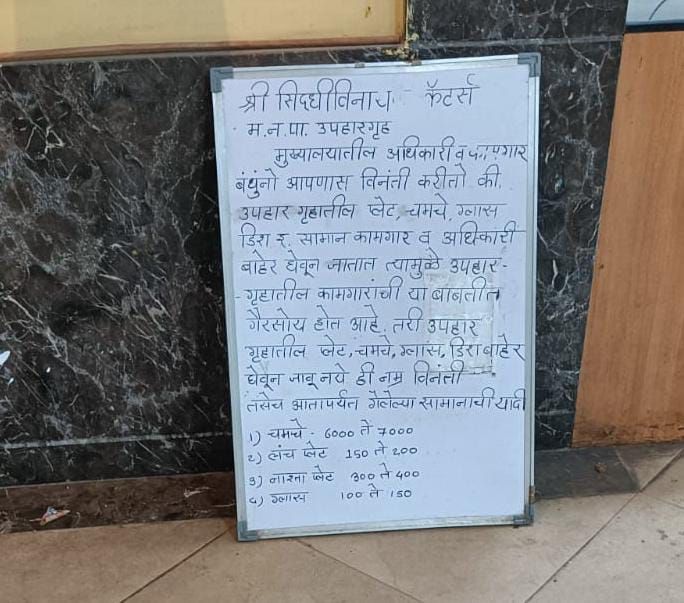 श्री सिद्धीविनाय कॅटर्स
म.न.पा. उपहारगृह
मुख्यालयातील अधिकारी व कामगार
बंधुंनो आपणास विनंती करीतो की.
उपहार गृहातील प्लेट, चमचे, ग्लास
डिश इ. सामान कामगार व अधिकारी
बाहेर घेवून जातात त्यामुळे उपहार -
- गृहातील कामगारांची या बाबतीत
गैरसोय होत आहे. तरी उपहार
गृहातील प्लेट, चमचे, ग्लास, डिश बाहेर
घेवून जावू नये ही नम्र विनंती
तसेच आतापर्यंत गेलेल्या सामानाची यादी
1) चमचे - 6000 ते 7000
2) लंच प्लेट 150 ते 200
3) नाश्ता प्लेट 300 ते 400
4) ग्लास 100 ते 150